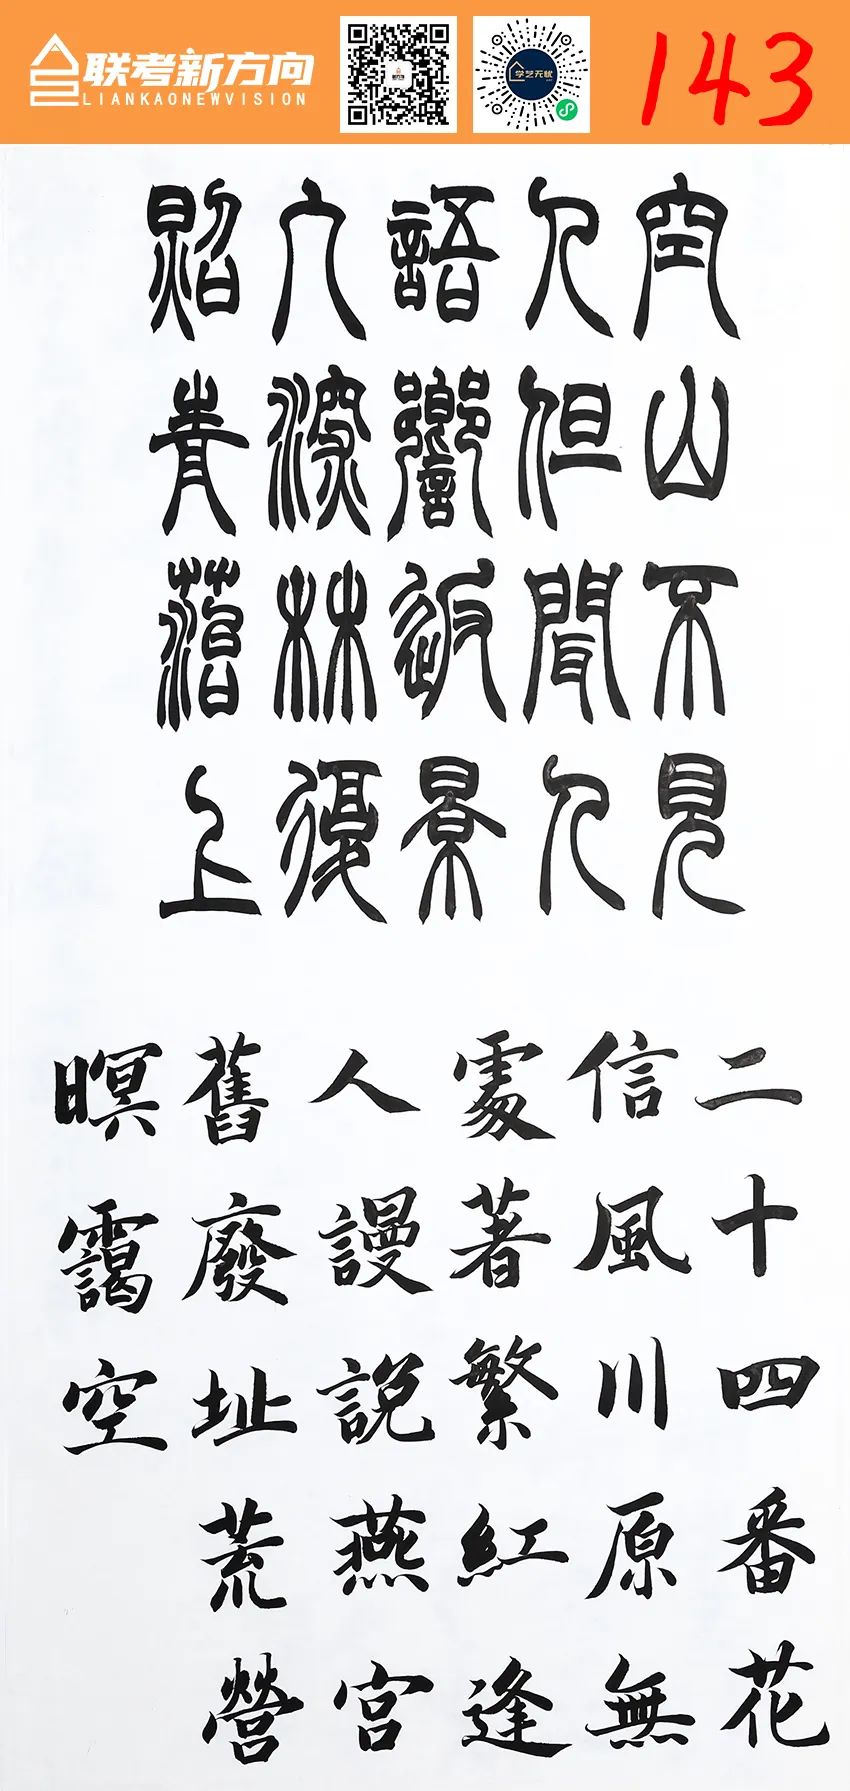 联考新方向
LIANKAONEWVISION
学艺无忧
143
空山不見
人但聞人
語響返景
入深林復
照青落上
二十四番花
信風川原無
處著繁紅逢
人謾說燕宮
舊廢址荒營
暝靄空